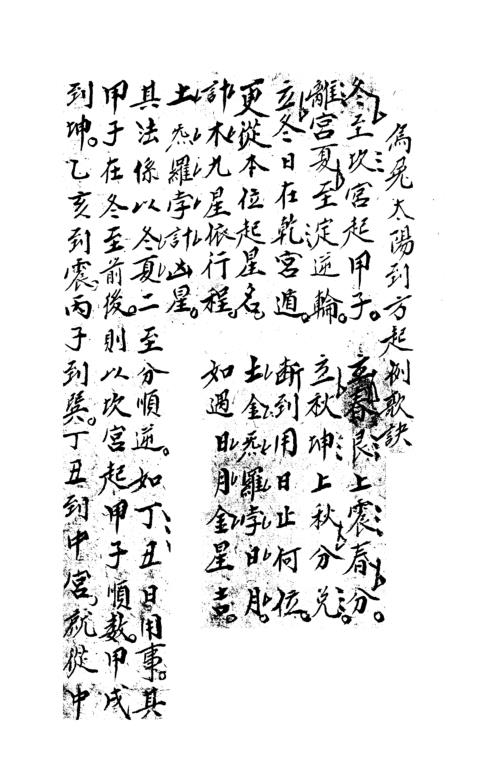 烏兔太陽到方起例歌訣
冬至坎宮起甲子。立春艮上震春分。
離宮夏至淀逆輪。立秋坤上秋分兌。
立冬日在乾宮遁。斷到用日止何位。
更從本位起星名。土金炁羅孛日月。
計木九星依行程。如遇日月金星吉。
土炁羅孛計凶星。
其法係以冬夏二至分順逆。如丁丑日用事。其
甲子在冬至前後。則以坎宮起甲子順数。甲戌
到坤。乙亥到震。丙子到巽。丁丑到中宮。就從中